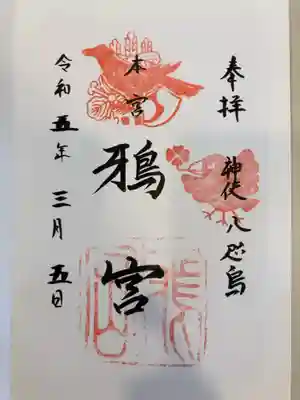 奉拝
神使八咫烏
本宮
鴉宮
令和五年三月五日